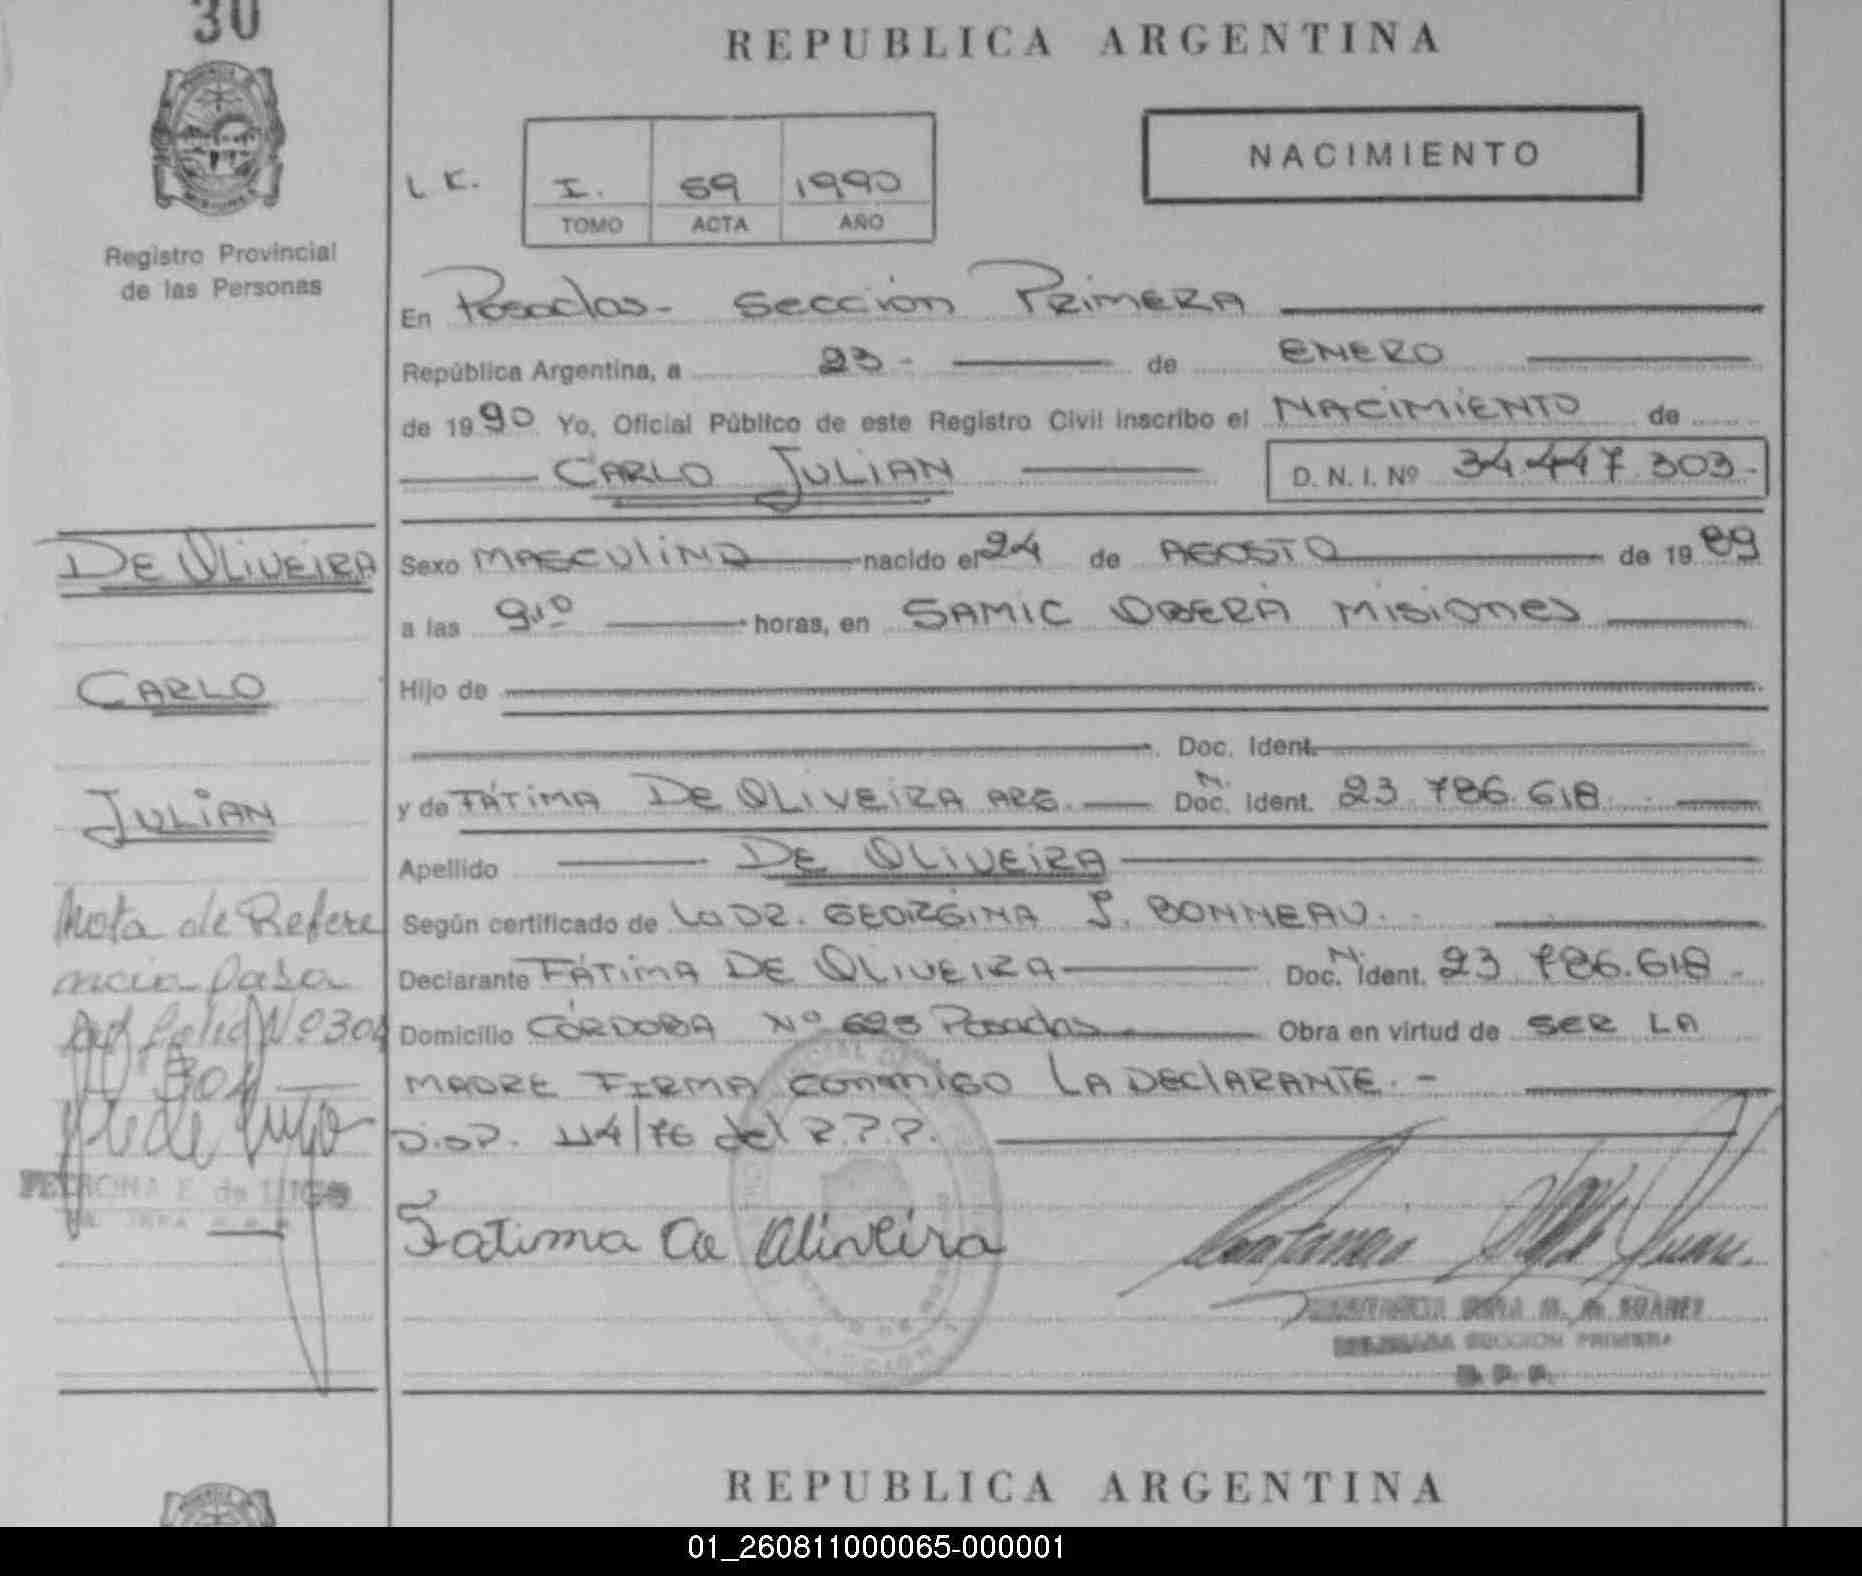 30
REPUBLICA ARGENTINA
NACIMIENTO
L K.
I. 59 1990
TOMO ACTA AÑO
Registro Provincial
de las Personas
En Posadas- Sección Primera
República Argentina, a 23- de ENERO
de 1990 Yo, Oficial Público de este Registro Civil inscribo el NACIMIENTO de
CARLO JULIAN D. N. I. Nº 34.447.303-
DE OLIVEIRA
Sexo MASCULINO nacido el 24 de AGOSTO de 1989
a las 9:10 horas, en SAMIC OBERÁ MISIONES
CARLO
Hijo de
Doc. Ident.
JULIAN
y de FÁTIMA DE OLIVEIRA ARG. Doc. N. Ident. 23.786.618
Apellido DE OLIVEIRA
Nota de Refere
Según certificado de LA DR. GEORGINA S. BONNEAU.
ncia pasa
Declarante FÁTIMA DE OLIVEIRA Doc. N. Ident. 23.786.618-
Folio Nº 304
Domicilio CÓRDOBA Nº 623 Posadas Obra en virtud de SER LA
304
MADRE FIRMA CONMIGO LA DECLARANTE.-
DISP. 114/76 del R.P.P.
PETRONA E. de LUGO
Fatima De Oliveira
SECCION PRIMERA
R. P. P.
REPUBLICA ARGENTINA
01_260811000065-000001